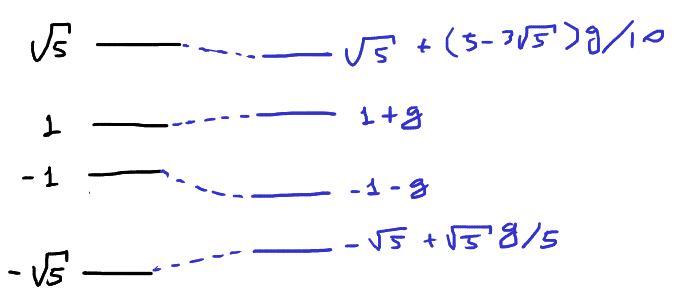 √5 √5 + (5-3√5)g/10
1 1+g
-1 -1-g
-√5 -√5 + √5 g/5